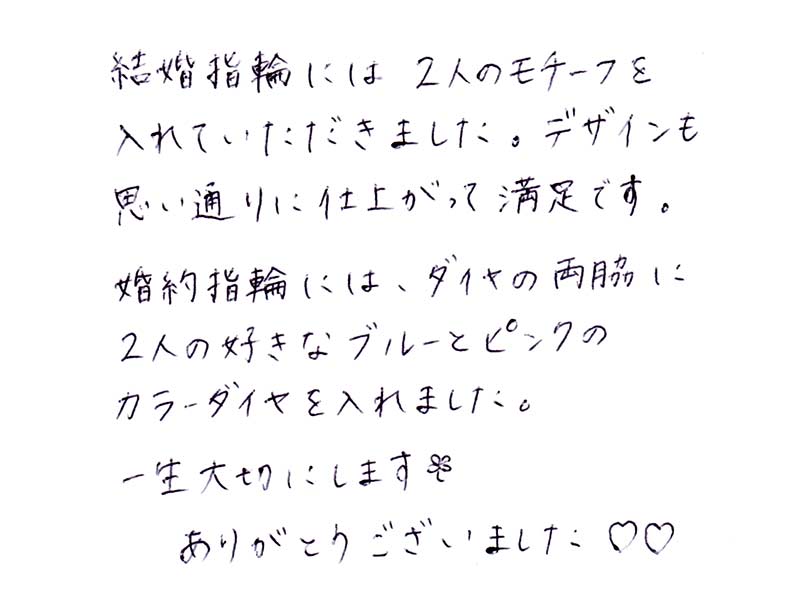 結婚指輪には 2人のモチーフを
入れていただきました。デザインも
思い通りに仕上がって満足です。
婚約指輪には、ダイヤの両脇に
2人の好きなブルーとピンクの
カラーダイヤを入れました。
一生大切にします
ありがとうございました♡♡